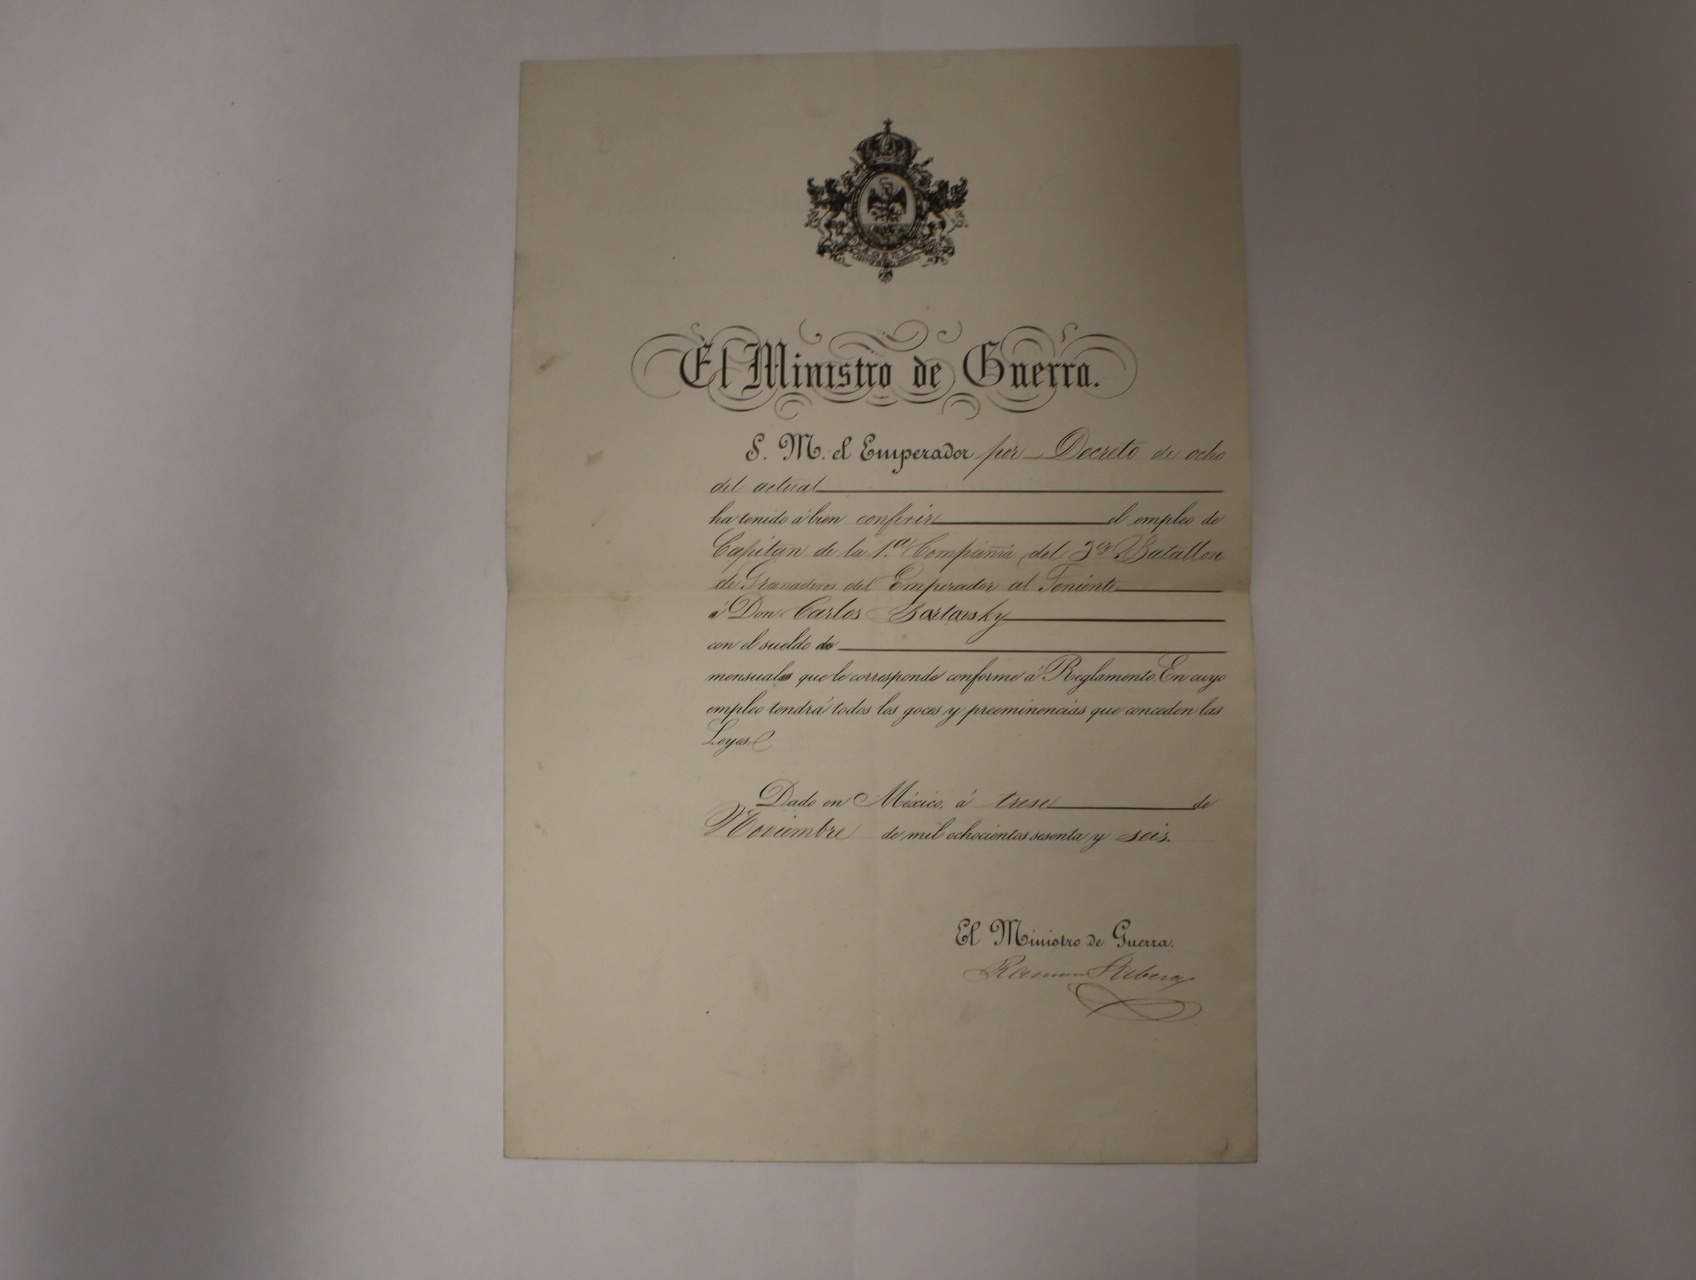 El Ministro de Guerra.
S. M. el Emperador por Decreto de ocho
del actual
ha tenido á bien conferir el empleo de
Capitan de la 1.ª Compañía del 3er Batallon
de Granaderos del Emperador al Teniente
á Don Carlos
con el sueldo de
mensual que le corresponde conforme á Reglamento. En cuyo
empleo tendrá todos los goces y preeminencias que conceden las
Leyes.
Dado en México, á trese de
Noviembre de mil ochocientos sesenta y seis.
El Ministro de Guerra.
Ramon